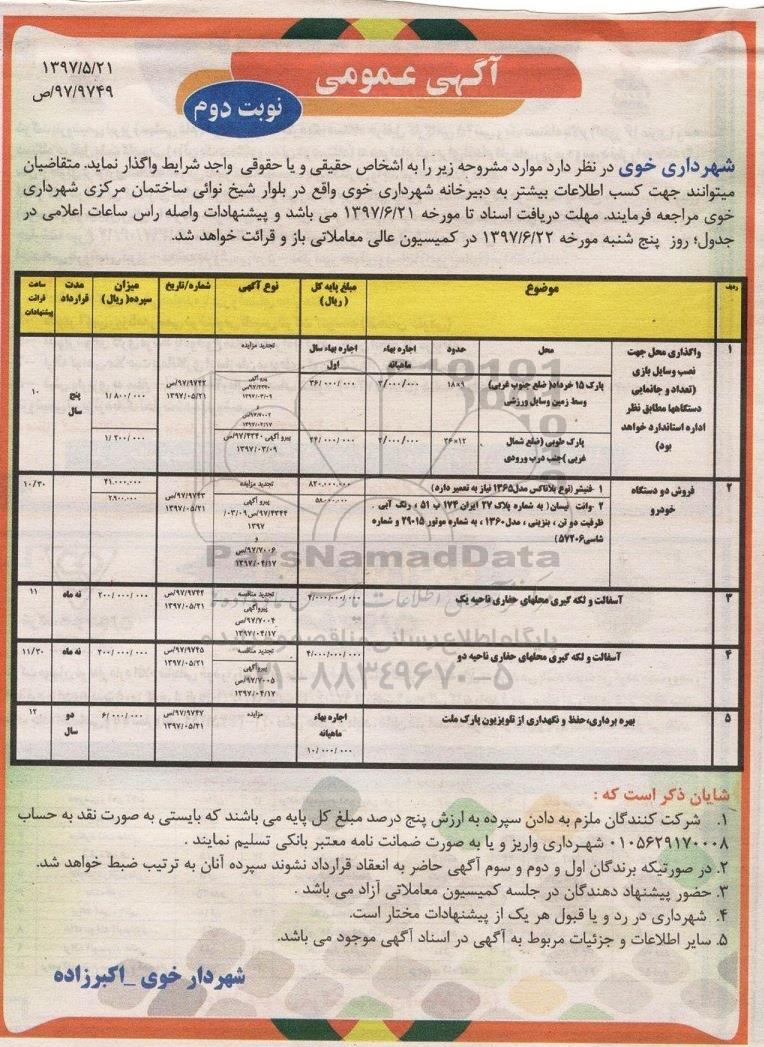 ۱۳۹۷/۵/۲۱
۹۷/۹۷۴۹/ص
آگهی عمومی
نوبت دوم
شهرداری خوی در نظر دارد موارد مشروحه زیر را به اشخاص حقیقی و یا حقوقی واجد شرایط واگذار نماید. متقاضیان
میتوانند جهت کسب اطلاعات بیشتر به دبیرخانه شهرداری خوی واقع در بلوار شیخ نوائی ساختمان مرکزی شهرداری
خوی مراجعه فرمایند. مهلت دریافت اسناد تا مورخه ۱۳۹۷/۶/۲۱ می باشد و پیشنهادات واصله راس ساعات اعلامی در
جدول؛ روز پنج شنبه مورخه ۱۳۹۷/۶/۲۲ در کمیسیون عالی معاملاتی باز و قرائت خواهد شد.
ردیف
موضوع
مبلغ پایه کل
( ریال)
نوع آگهی
شماره/تاریخ
میزان
سپرده( ریال)
مدت
قرارداد
ساعت
قرائت
پیشنهادات
۱
واگذاری محل جهت
نصب وسایل بازی
(تعداد و جانمایی
دستگاهها مطابق نظر
اداره استاندارد خواهد
بود)
محل
حدود
اجاره بهاء
ماهیانه
اجاره بهاء سال
اول
تجدید مزایده
پارک ۱۵ خرداد( ضلع جنوب غربی)
وسط زمین وسایل ورزشی
۹*۱۸
۳/۰۰۰/۰۰۰
۳۶/۰۰۰/۰۰۰
پیرو آگهی
۱۳۹۷/۰۳/۰۹
و
۹۷/۷۰۰۲/ص
۱۳۹۷/۰۴/۱۷
۹۷/۹۷۴۲/ص
۱۳۹۷/۰۵/۲۱
۱/۸۰۰/۰۰۰
پنج
سال
۱۰
پارک طوبی (ضلع شمال
غربی )جنب درب ورودی
۱۲*۲۶
۲/۰۰۰/۰۰۰
۲۴/۰۰۰/۰۰۰
پیرو آگهی ۹۷/۴۳۴۰/ص
۱۳۹۷/۰۳/۰۹
۱/۲۰۰/۰۰۰
۲
فروش دو دستگاه
خودرو
۱- فنیشر(نوع بلاناکس مدل۱۳۶۵ نیاز به تعمیر دارد)
۸۲۰.۰۰۰.۰۰۰
تجدید مزایده
۹۷/۹۷۴۳/ص
۱۳۹۷/۰۵/۲۱
۴۱.۰۰۰.۰۰۰
۱۰/۳۰
۲- وانت نیسان( به شماره پلاک ۲۷ ایران ۱۷۴ ب ۵۱ ، رنگ آبی ،
ظرفیت دو تن ، بنزینی ، مدل۱۳۶۰ ، به شماره موتور ۲۹۰۱۵ و شماره
شاسی۵۷۲۰۶)
۵۸.۰۰۰.۰۰۰
پیرو آگهی
۹۷/۴۳۴۴/ص ۰۳/۰۹/
۱۳۹۷
و
۹۷/۷۰۰۶/ص
۱۳۹۷/۰۴/۱۷
۲.۹۰۰.۰۰۰
۳
آسفالت و لکه گیری محلهای حفاری ناحیه یک
۴/۰۰۰/۰۰۰/۰۰۰
تجدید مناقصه
پیروآگهی
۹۷/۷۰۰۴/ص
۱۳۹۷/۰۴/۱۷
۹۷/۹۷۴۴/ص
۱۳۹۷/۰۵/۲۱
۲۰۰/۰۰۰/۰۰۰
نه ماه
۱۱
۴
آسفالت و لکه گیری محلهای حفاری ناحیه دو
۴/۰۰۰/۰۰۰/۰۰۰
تجدید مناقصه
پیروآگهی
۹۷/۷۰۰۵/ص
۱۳۹۷/۰۴/۱۷
۹۷/۹۷۴۵/ص
۱۳۹۷/۰۵/۲۱
۲۰۰/۰۰۰/۰۰۰
نه ماه
۱۱/۳۰
۵
بهره برداری،حفظ و نگهداری از تلویزیون پارک ملت
اجاره بهاء
ماهیانه
۱۰/۰۰۰/۰۰۰
مزایده
۹۷/۹۷۴۷/ص
۱۳۹۷/۰۵/۲۱
۶/۰۰۰/۰۰۰
دو
سال
۱۲
ParsNamadData
۰۲۱-۸۸۳۴۹۶۷۰-۵
شایان ذکر است که :
۱. شرکت کنندگان ملزم به دادن سپرده به ارزش پنج درصد مبلغ کل پایه می باشند که بایستی به صورت نقد به حساب
۰۱۰۵۶۲۹۱۷۰۰۰۸ شهرداری واریز و یا به صورت ضمانت نامه معتبر بانکی تسلیم نمایند .
۲. در صورتیکه برندگان اول و دوم و سوم آگهی حاضر به انعقاد قرارداد نشوند سپرده آنان به ترتیب ضبط خواهد شد.
۳. حضور پیشنهاد دهندگان در جلسه کمیسیون معاملاتی آزاد می باشد .
۴. شهرداری در رد و یا قبول هر یک از پیشنهادات مختار است.
۵. سایر اطلاعات و جزئیات مربوط به آگهی در اسناد آگهی موجود می باشد.
شهردار خوی _اکبرزاده